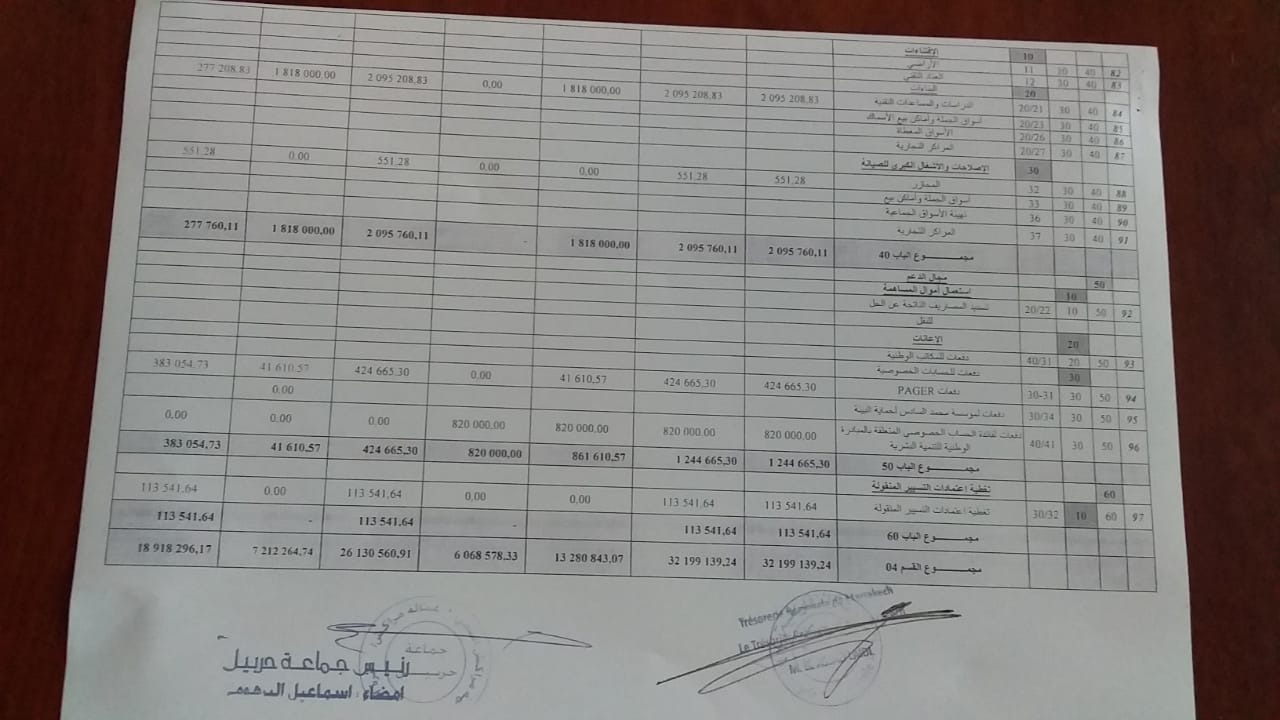 10 الإقتناءات
82 40 30 11 الأراضي
83 40 30 12 العتاد التقني
20 البناءات
84 40 30 20/21 الدراسات والمساعدات التقنية 2 095 208,83 2 095 208,83 1 818 000,00 0,00 2 095 208,83 1 818 000,00 277 208,83
85 40 30 20/23 أسواق الجملة وأماكن بيع الأسماك
86 40 30 20/26 الأسواق المغطاة
87 40 30 20/27 المراكز التجارية
30 الإصلاحات والاشغال الكبرى للصيانة
88 40 30 32 المجازر 551,28 551,28 0,00 0,00 551,28 0,00 551,28
89 40 30 33 أسواق الجملة وأماكن بيع
90 40 30 36 تهيئة الأسواق الجماعية
91 40 30 37 المراكز التجارية
مجموع الباب 40 2 095 760,11 2 095 760,11 1 818 000,00 - 2 095 760,11 1 818 000,00 277 760,11
50 مجال الدعم
10 استعمال أموال المساهمة
92 50 10 20/22 تسديد المصاريف الناتجة عن الحل
للنقل
20 الإعانات
93 50 20 40/31 دفعات للمكاتب الوطنية
30 دفعات للحسابات الخصوصية
94 50 30 30-31 دفعات PAGER 424 665,30 424 665,30 41 610,57 0,00 424 665,30 41 610,57 383 054,73
95 50 30 30/34 دفعات لمؤسسة محمد السادس لحماية البيئة 0,00
96 50 30 40/41 دفعات لفائدة الحساب الخصوصي المتعلقة بالمبادرة
الوطنية للتنمية البشرية 820 000,00 820 000,00 820 000,00 820 000,00 0,00 0,00 0,00
مجموع الباب 50 1 244 665,30 1 244 665,30 861 610,57 820 000,00 424 665,30 41 610,57 383 054,73
60 تغطية اعتمادات التسيير المنقولة
97 60 10 30/32 تغطية اعتمادات التسيير المنقولة 113 541,64 113 541,64 0,00 0,00 113 541,64 0,00 113 541,64
مجموع الباب 60 113 541,64 113 541,64 - 113 541,64 - 113 541,64
مجموع القسم 04 32 199 139,24 32 199 139,24 13 280 843,07 6 068 578,33 26 130 560,91 7 212 264,74 18 918 296,17
de Marrakech
Le
جماعة
رئيس جماعة حربيل
امضاء : اسماعيل